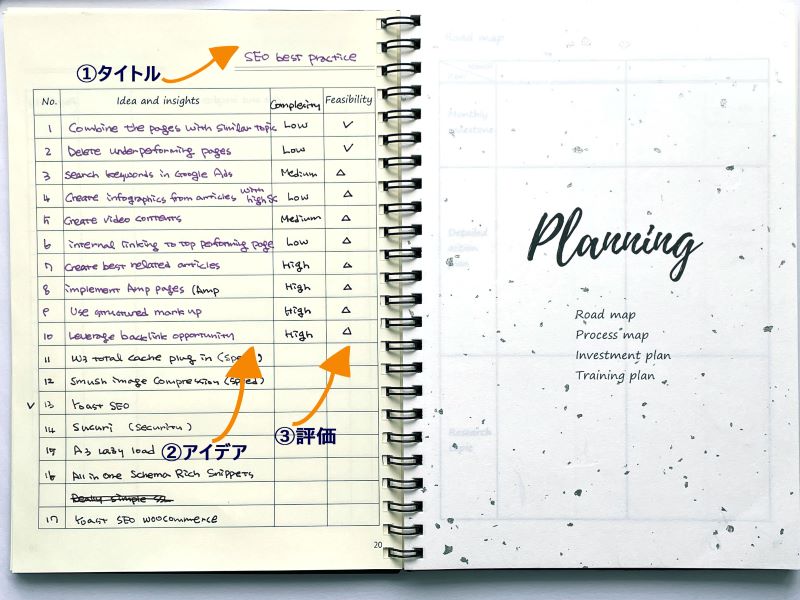 ①タイトル
SEO best practice
No. Idea and insights Complexity Feasibility
1 Combine the pages with similar topic Low ✓
2 Delete underperforming pages Low ✓
3 Search keywords in Google Ads Medium △
4 Create infographics from articles with high Low △
5 Create video contents Medium △
6 internal linking to top performing page Low △
7 Create best related articles High △
8 implement Amp pages (Amp High △
9 Use structured mark up High △
10 Leverage backlink opportunity High △
11 W3 total cache plug in
12 Smush image Compression (Speed)
✓ 13 Yoast SEO
14 Sucuri (Security)
15 A3 Lazy load
②アイデア
③評価
16 All in One Schema Rich Snippets
Really simple SSL
17 Yoast SEO woocommerce
20
Planning
Road map
Process map
Investment plan
Training plan